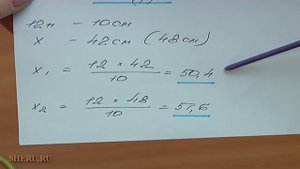 12п - 10см
х - 42см (48см)
х₁ = 12 × 42 / 10 = 50,4
х₂ = 12 × 48 / 10 = 57,6
SHERU.RU